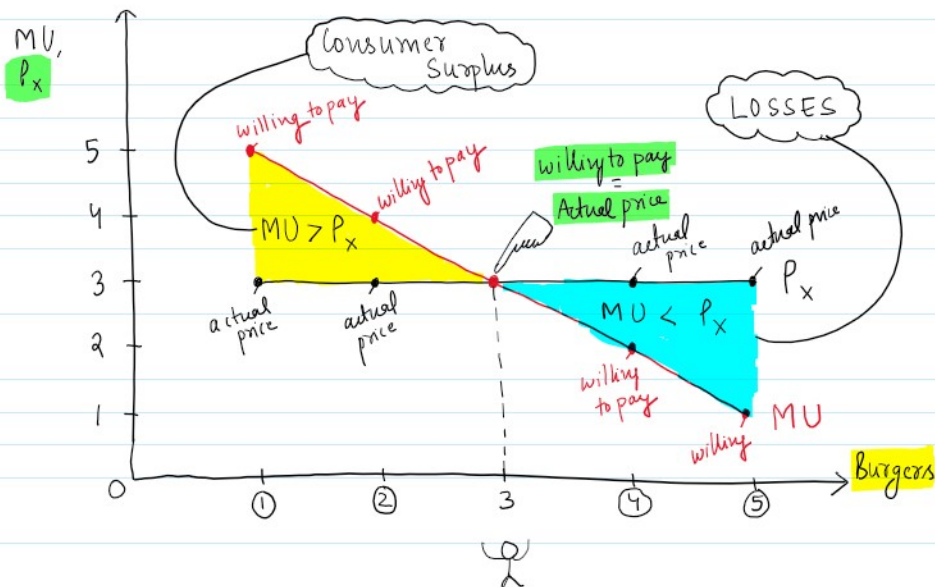 MU,
Px
Consumer
Surplus
LOSSES
willing to pay
willing to pay
willing to pay
=
Actual price
5
4
3
2
1
0
MU > Px
actual
price
actual
price
actual
price
actual price
Px
MU < Px
willing
to pay
willing
MU
1
2
3
4
5
Burgers